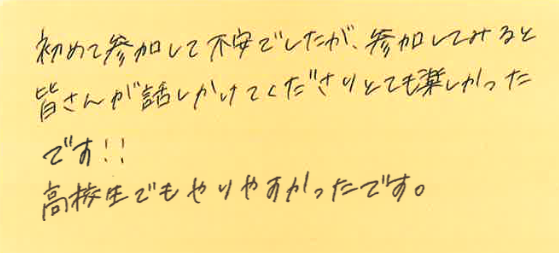 初めて参加して不安でしたが、参加してみると
皆さんが話しかけてくださりとても楽しかった
です!!
高校生でもやりやすかったです。